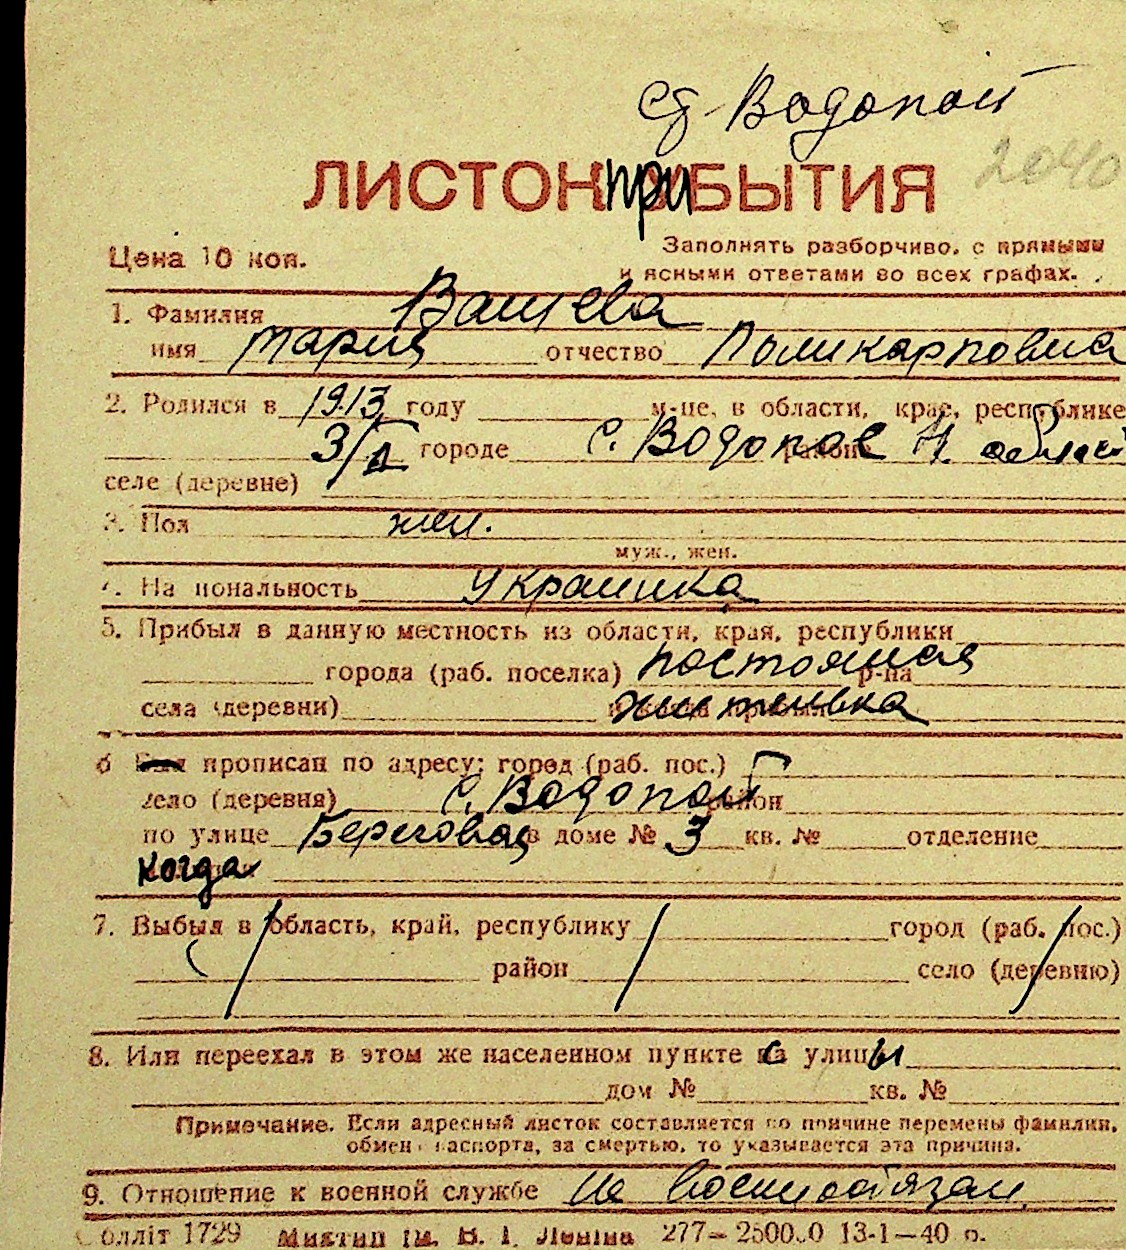 ст Водопой
ЛИСТОК ПРИБЫТИЯ
2040
Цена 10 коп.
Заполнять разборчиво, с прямыми
и ясными ответами во всех графах.
1. Фамилия Ващева
имя Мария отчество Поликарповна
2. Родился в 1913 году м-це, в области, крае, республике
3/II городе с. Водопое Н. област
селе (деревне)
3. Пол жен.
муж., жен.
4. Национальность Украинка
5. Прибыл в данную местность из области, края, республики
города (раб. поселка) постоянная р-на
села (деревни) жителька
6 прописан по адресу: город (раб. пос.)
село (деревня) с. Водопой район
по улице Береговая в доме № 3 кв. № отделение
когда
7. Выбыл в область, край, республику город (раб. пос.)
район село (деревню)
8. Или переехал в этом же населенном пункте с улицы
дом № кв. №
Примечание. Если адресный листок составляется по причине перемены фамилии,
обмен паспорта, за смертью, то указывается эта причина.
9. Отношение к военной службе не военнообязан
Облліт 1729 Миктип ім. В. І. Леніна 277— 13-1—40 р.